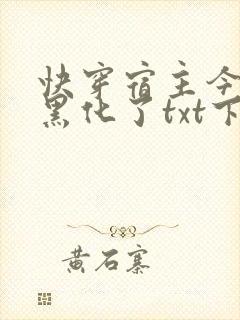 快穿宿主今
黑化了txt下
黄石寨